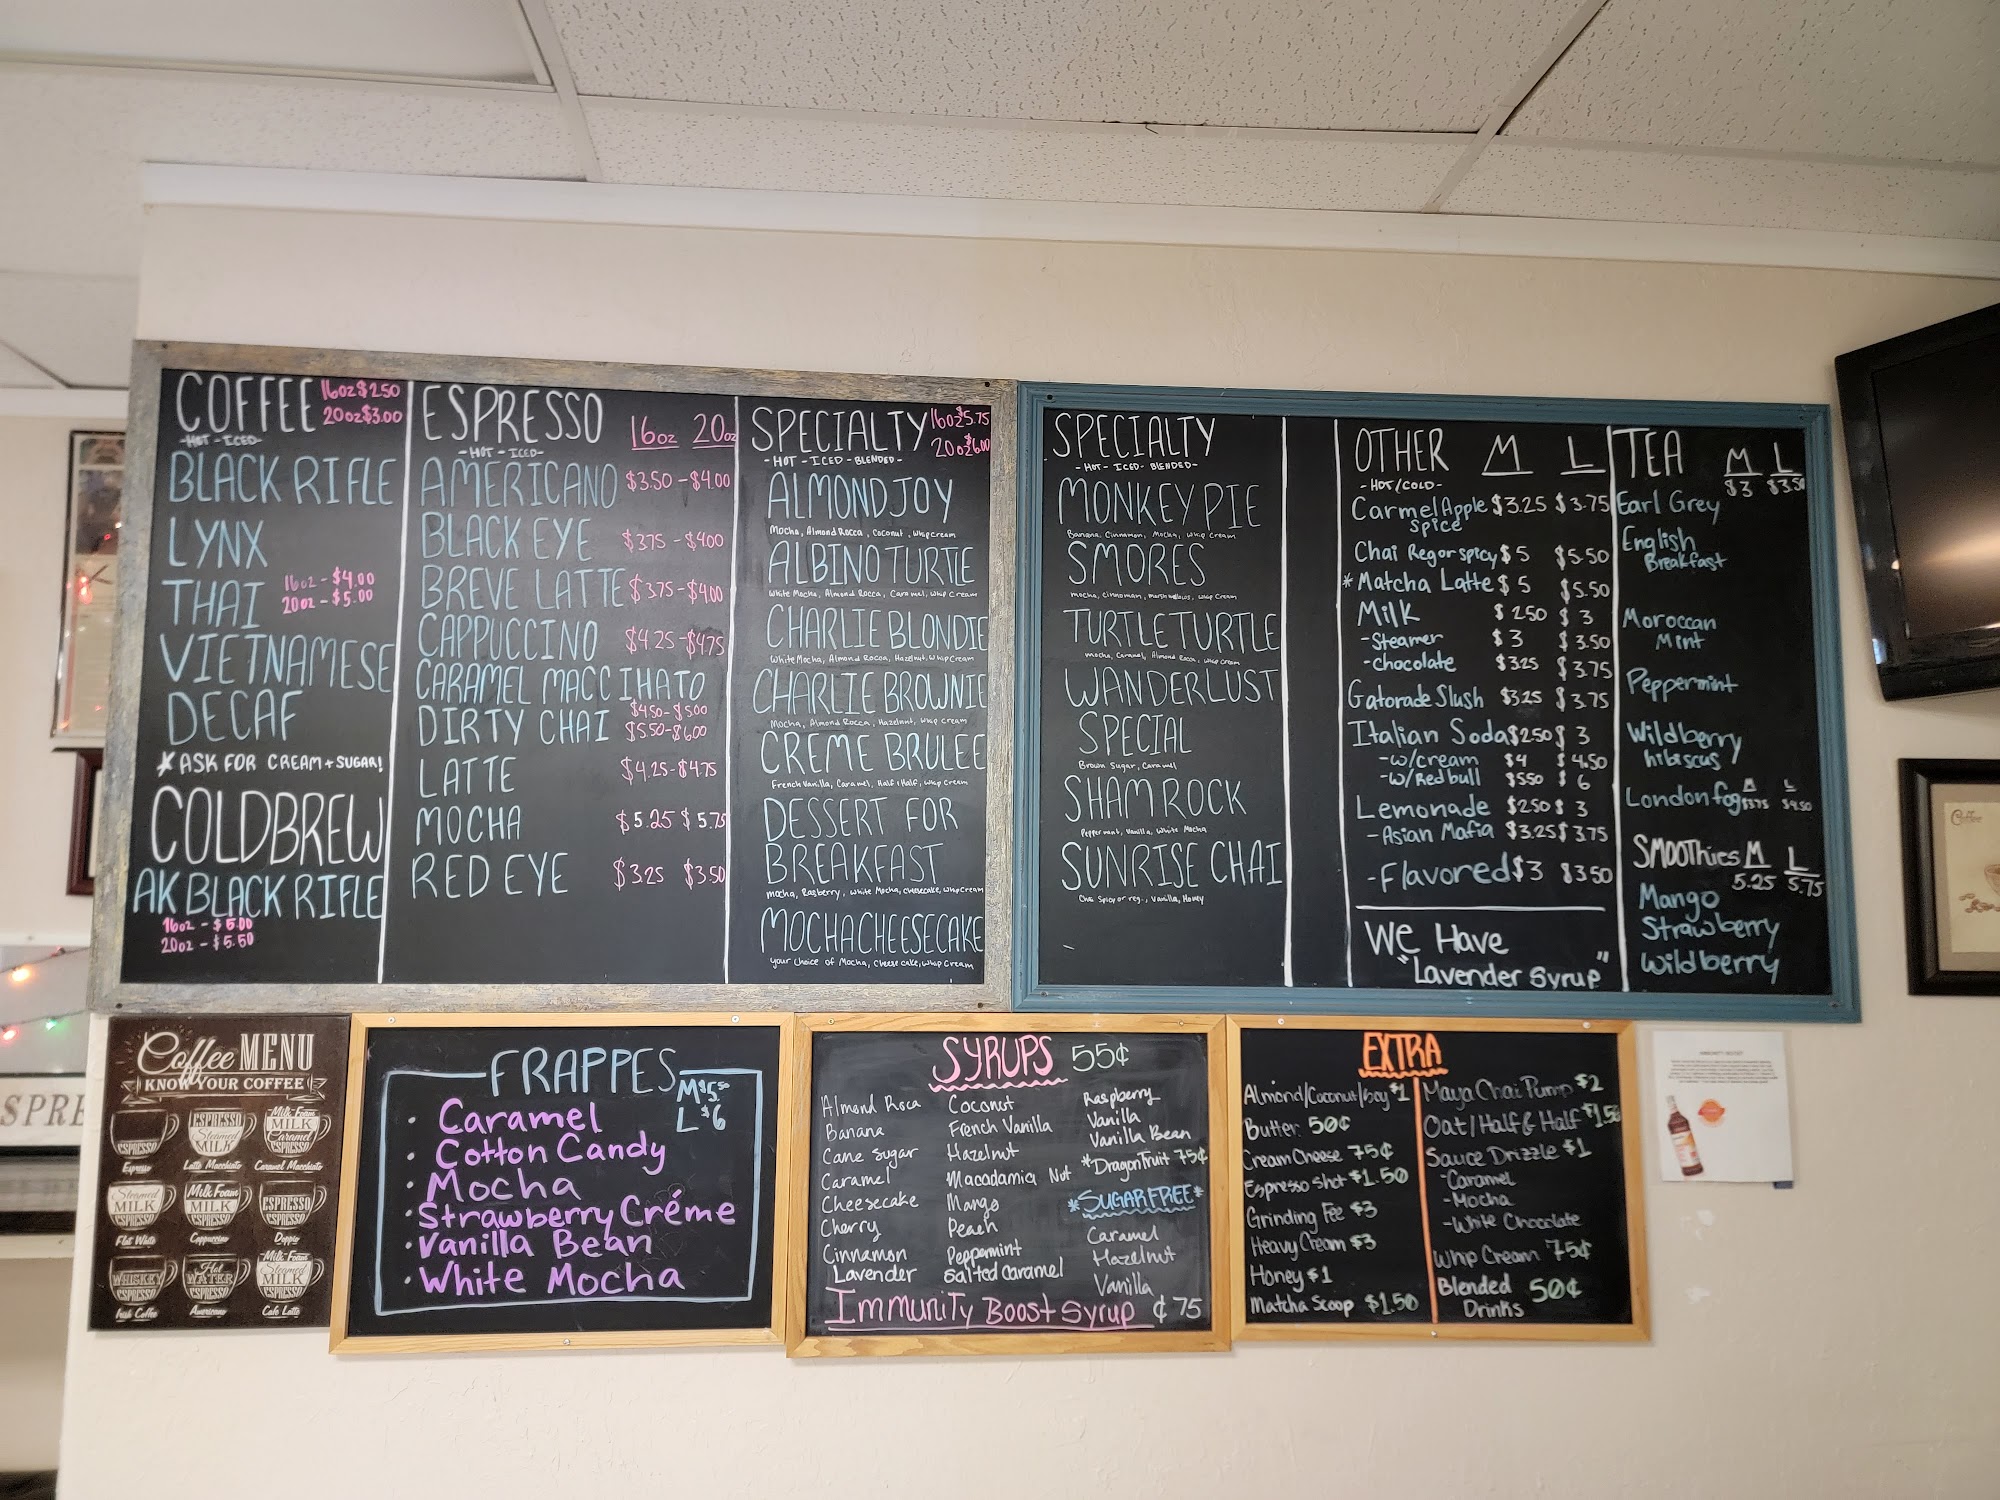 COFFEE 16oz $2.50
20oz $3.00
-HOT - ICED-
BLACK RIFLE
LYNX
THAI 16oz - $4.00
20oz - $5.00
VIETNAMESE
DECAF
*ASK FOR CREAM + SUGAR!
COLDBREW
AK BLACK RIFLE
16oz - $5.00
20oz - $5.50
ESPRESSO 16oz 20oz
-HOT - ICED-
AMERICANO $3.50 - $4.00
BLACK EYE $3.75 - $4.00
BREVE LATTE $3.75 - $4.00
CAPPUCCINO $4.25 - $4.75
CARAMEL MACCIHATO
$4.50 - $5.00
DIRTY CHAI $5.50 - $6.00
LATTE $4.25 - $4.75
MOCHA $5.25 $5.75
RED EYE $3.25 $3.50
SPECIALTY 16oz $5.75
20oz $6.00
-HOT - ICED - BLENDED-
ALMOND JOY
Mocha, Almond Rocca, Coconut, Whip Cream
ALBINO TURTLE
White Mocha, Almond Rocca, Caramel, Whip Cream
CHARLIE BLONDIE
White Mocha, Almond Rocca, Hazelnut, Whip Cream
CHARLIE BROWNIE
Mocha, Almond Rocca, Hazelnut, Whip Cream
CREME BRULEE
French Vanilla, Caramel, Half + Half, Whip Cream
DESSERT FOR
BREAKFAST
Mocha, Rasberry, White Mocha, Cheesecake, Whip Cream
MOCHA CHEESECAKE
your choice of Mocha, Cheese cake, Whip Cream
SPECIALTY
-HOT - ICED- BLENDED-
MONKEY PIE
Banana, Cinnamon, Mocha, Whip Cream
SMORES
Mocha, Cinnoman, Marshmallows, Whip Cream
TURTLE TURTLE
Mocha, Caramel, Almond Rocca, Whip Cream
WANDERLUST
SPECIAL
Brown Sugar, Caramel
SHAMROCK
Peppermint, Vanilla, White Mocha
SUNRISE CHAI
Chai Spicy or reg., Vanilla, Honey
OTHER M L
-HOT/COLD-
Carmel Apple $3.25 $3.75
Spice
Chai Reg or spicy $5 $5.50
*Matcha Latte $5 $5.50
Milk $2.50 $3
-Steamer $3 $3.50
-Chocolate $3.25 $3.75
Gatorade Slush $3.25 $3.75
Italian Soda $2.50 $3
-w/cream $4 $4.50
-w/Redbull $5.50 $6
Lemonade $2.50 $3
-Asian Mafia $3.25 $3.75
-Flavored $3 $3.50
We Have
"Lavender Syrup"
TEA M L
$3 $3.50
Earl Grey
English
Breakfast
Moroccan
Mint
Peppermint
Wildberry
hibiscus
London fog M L
$3.75 $4.50
SMOOThies M L
5.25 5.75
Mango
Strawberry
Wildberry
SPRE
Coffee MENU
KNOW YOUR COFFEE
ESPRESSO
Espresso
ESPRESSO
Steamed
MILK
Latte Macchiato
Milk Foam
MILK
Caramel
ESPRESSO
Caramel Macchiato
Steamed
MILK
ESPRESSO
Flat White
Milk Foam
MILK
ESPRESSO
Cappuccino
ESPRESSO
ESPRESSO
Doppio
WHISKEY
ESPRESSO
Irish Coffee
Hot
WATER
ESPRESSO
Americano
Milk Foam
Steamed
MILK
ESPRESSO
Cafe Latte
FRAPPES
M $5.50
L $6
· Caramel
· Cotton Candy
· Mocha
· Strawberry Créme
· Vanilla Bean
· White Mocha
SYRUPS 55¢
Almond Roca
Banana
Cane Sugar
Caramel
Cheesecake
Cherry
Cinnamon
Lavender
Coconut
French Vanilla
Hazelnut
Macadamia Nut
Mango
Peach
Peppermint
Salted Caramel
Raspberry
Vanilla
Vanilla Bean
*DragonFruit 75¢
*SUGAR FREE*
Caramel
Hazelnut
Vanilla
Immunity Boost Syrup ¢75
EXTRA
Almond/Coconut/Soy $1
Butter 50¢
Cream Cheese 75¢
Espresso shot $1.50
Grinding Fee $3
Heavy Cream $3
Honey $1
Matcha Scoop $1.50
Maya Chai Pump $2
Oat/Half & Half $1.50
Sauce Drizzle $1
-Caramel
-Mocha
-White Chocolate
Whip Cream 75¢
Blended 50¢
Drinks
Coffee